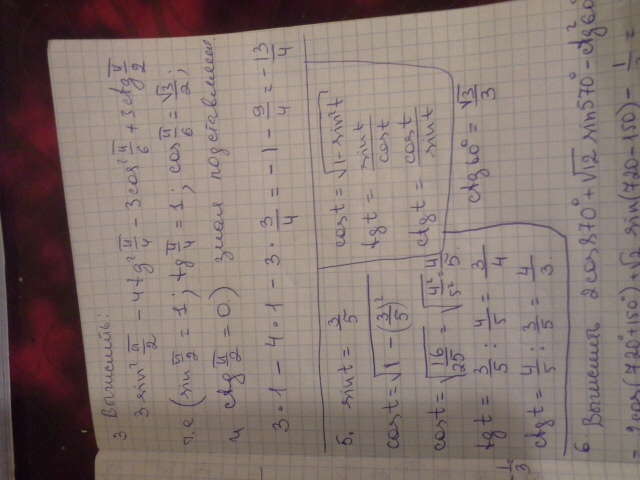 3 Вычислить:
3sin² π/2 - 4tg² π/4 - 3cos² π/6 + 3ctg π/2
т.е (sin π/2 = 1; tg π/4 = 1; cos π/6 = √3/2;
и ctg π/2 = 0.) зная подставляем.
3 · 1 - 4 · 1 - 3 · 3/4 = -1 - 9/4 = -13/4
5. sint = 3/5
cost = √(1 - (3/5)²)
cost = √(16/25) = √(4²/5²) = 4/5.
tgt = 3/5 : 4/5 = 3/4
ctgt = 4/5 : 3/5 = 4/3.
cost = √(1-sin²t)
tgt = sint/cost
ctgt = cost/sint
ctg60° = √3/3
1/3
6. Вычислить 2cos870° + √12 sin570° - ctg²60°
= 2cos(720°+150°) + √2 sin(720-150) - 1/ =